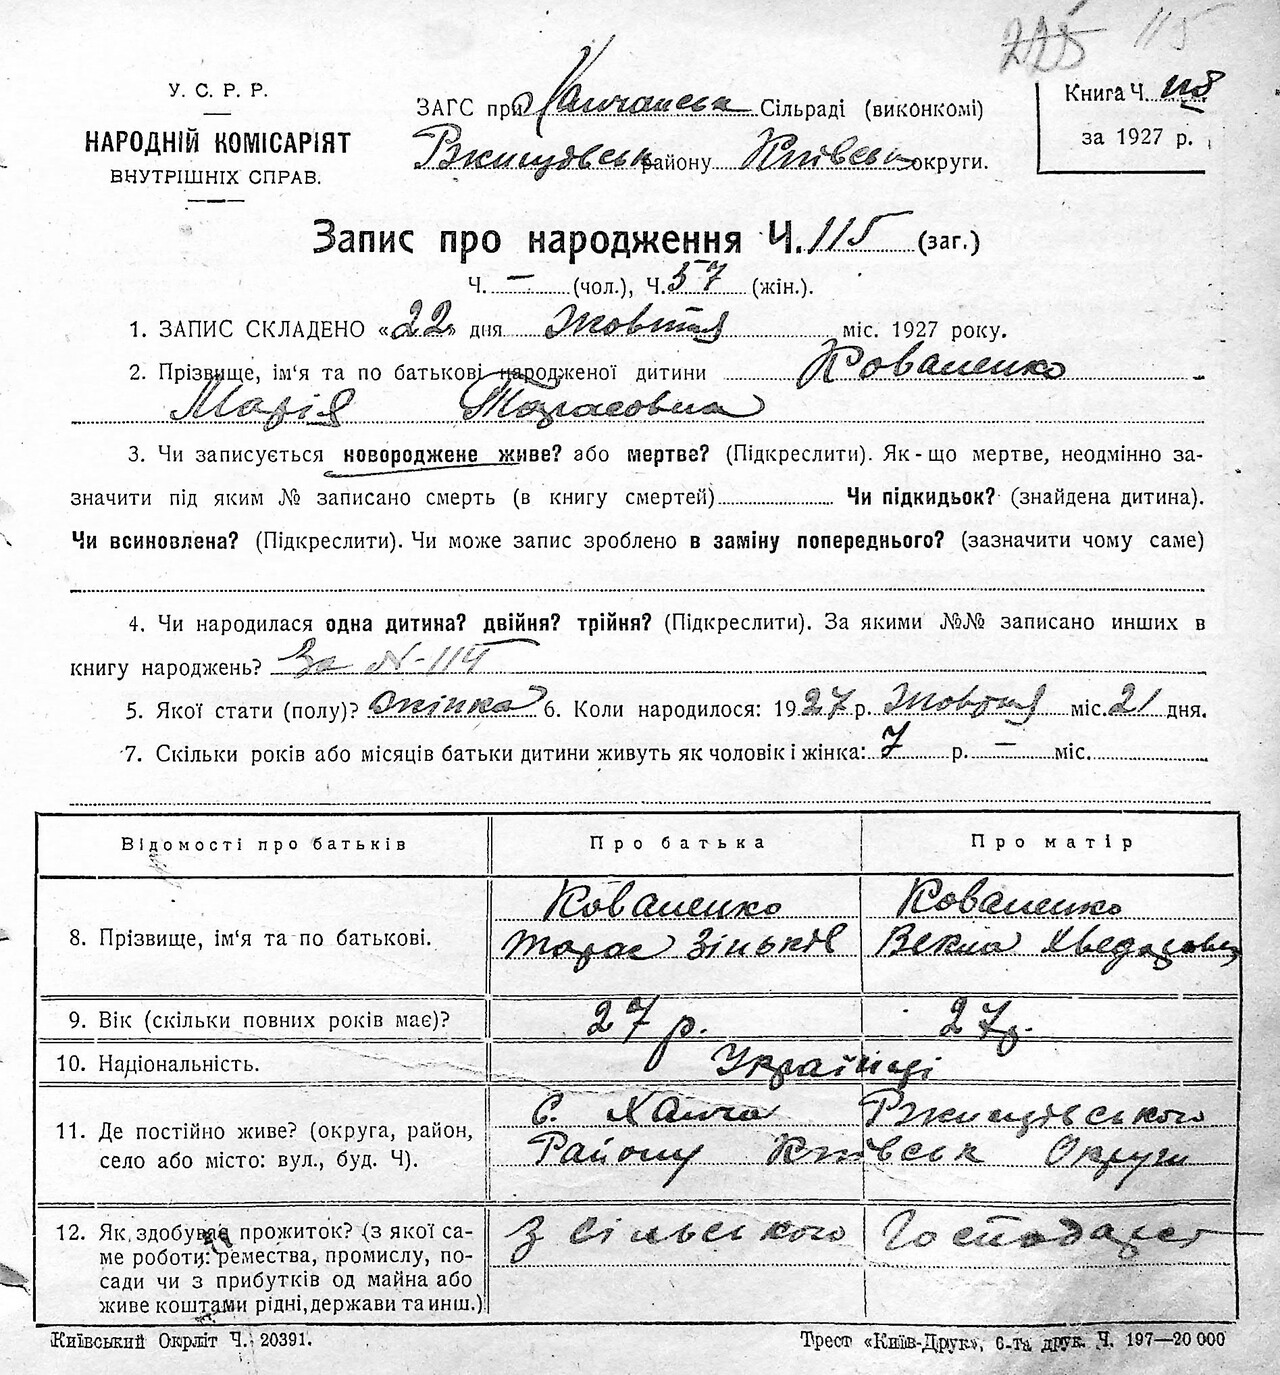 115
У. С. Р. Р.
НАРОДНІЙ КОМІСАРІЯТ
ВНУТРІШНІХ СПРАВ.
ЗАГС при Сільраді (виконкомі)
Ржищівськ району Київськ округи.
Книга Ч.
за 1927 р.
Запис про народження Ч. 115 (заг.)
Ч. — (чол.), Ч. 57 (жін.).
1. ЗАПИС СКЛАДЕНО «22» дня Жовтня міс. 1927 року.
2. Прізвище, ім'я та по батькові народженої дитини Коваленко
Марія Тарасовна
3. Чи записується новороджене живе? або мертве? (Підкреслити). Як-що мертве, неодмінно за-
значити під яким № записано смерть (в книгу смертей) Чи підкидьок? (знайдена дитина).
Чи всиновлена? (Підкреслити). Чи може запис зроблено в заміну попереднього? (зазначити чому саме)
4. Чи народилася одна дитина? двійня? трійня? (Підкреслити). За якими №№ записано инших в
книгу народжень? За N-114
5. Якої стати (полу)? Жінка 6. Коли народилося: 1927 р. Жовтня міс. 21 дня.
7. Скільки років або місяців батьки дитини живуть як чоловік і жінка: 7 р. — міс.
Відомості про батьків Про батька Про матір
8. Прізвище, ім'я та по батькові.
Коваленко Коваленко
Тарас Зіньків Векла
9. Вік (скільки повних років має)? 27 р. 27 р.
10. Національність. Українці
11. Де постійно живе? (округа, район,
село або місто: вул., буд. Ч).
С. Ржищівського
Району Київськ Округи
12. Як здобуває прожиток? (з якої са-
ме роботи: ремества, промислу, по-
сади чи з прибутків од майна або
живе коштами рідні, держави та инш.)
З сільського Господарст
Київський Окрліт Ч. 20391.
Трест «Київ-Друк», 6-та друк. Ч. 197—20 000